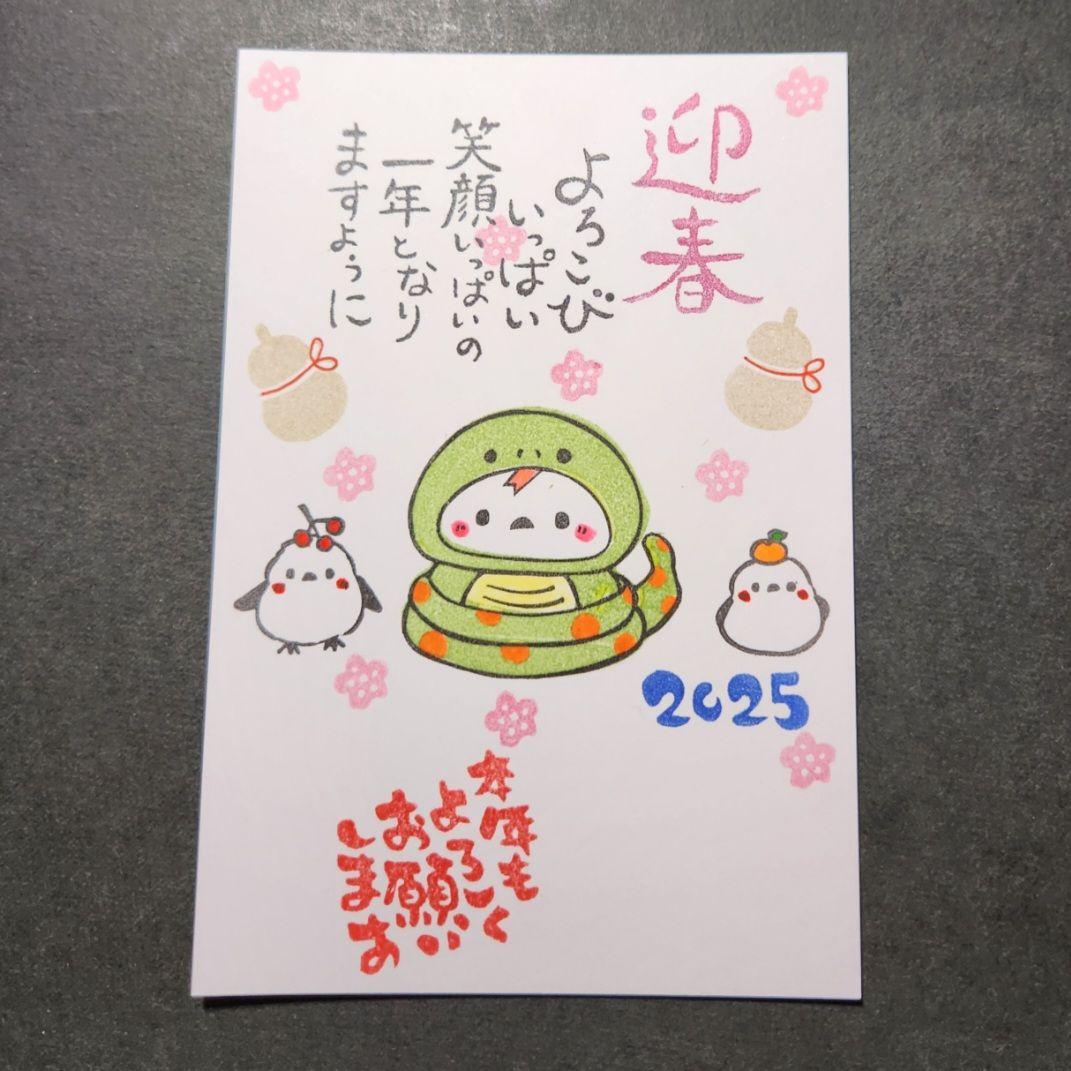 迎春
よろこび
いっぱい
笑顔いっぱいの
一年となり
ますように
2025
本年も
よろしく
お願い
します